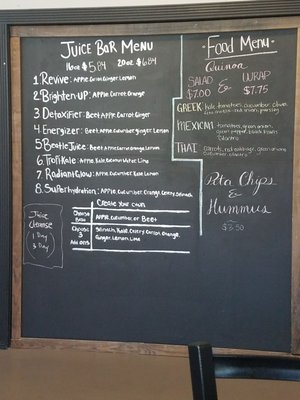 JUICE BAR MENU
16oz $5.84 20oz $6.84
1. Revive: Apple, Carrot, Ginger, Lemon
2. Brighten-up: Apple, Carrot, Orange
3. Detoxifier: Beet, Apple, Carrot, Ginger
4. Energizer: Beet, Apple, Cucumber, Ginger, Lemon
5. BeetleJuice: Beet, Apple, Carrot, Orange, Lemon
6. TropiKale: Apple, Kale, Lime
7. RadiantGlow: Apple, Cucumber, Kale, Lemon
8. SuperHydration: Apple, Cucumber, Orange, Celery, Spinach
Create your own
Choose Base
Apple, Cucumber, or Beet
Choose 3 Add ons
Spinach, Kale, Celery, Carrot, Orange,
Ginger, Lemon, Lime
Juice
Cleanse
1 Day
3 Day
- Food Menu -
Quinoa
SALAD & WRAP
$7.00 $7.75
GREEK Kale, tomatoes, cucumber, olives
MEXICAN tomatoes, green onion,
green pepper, black beans
Cilantro
THAI Carrots, red cabbage, green onions
Cucumber, cilantro
Pita Chips
&
Hummus
$3.50